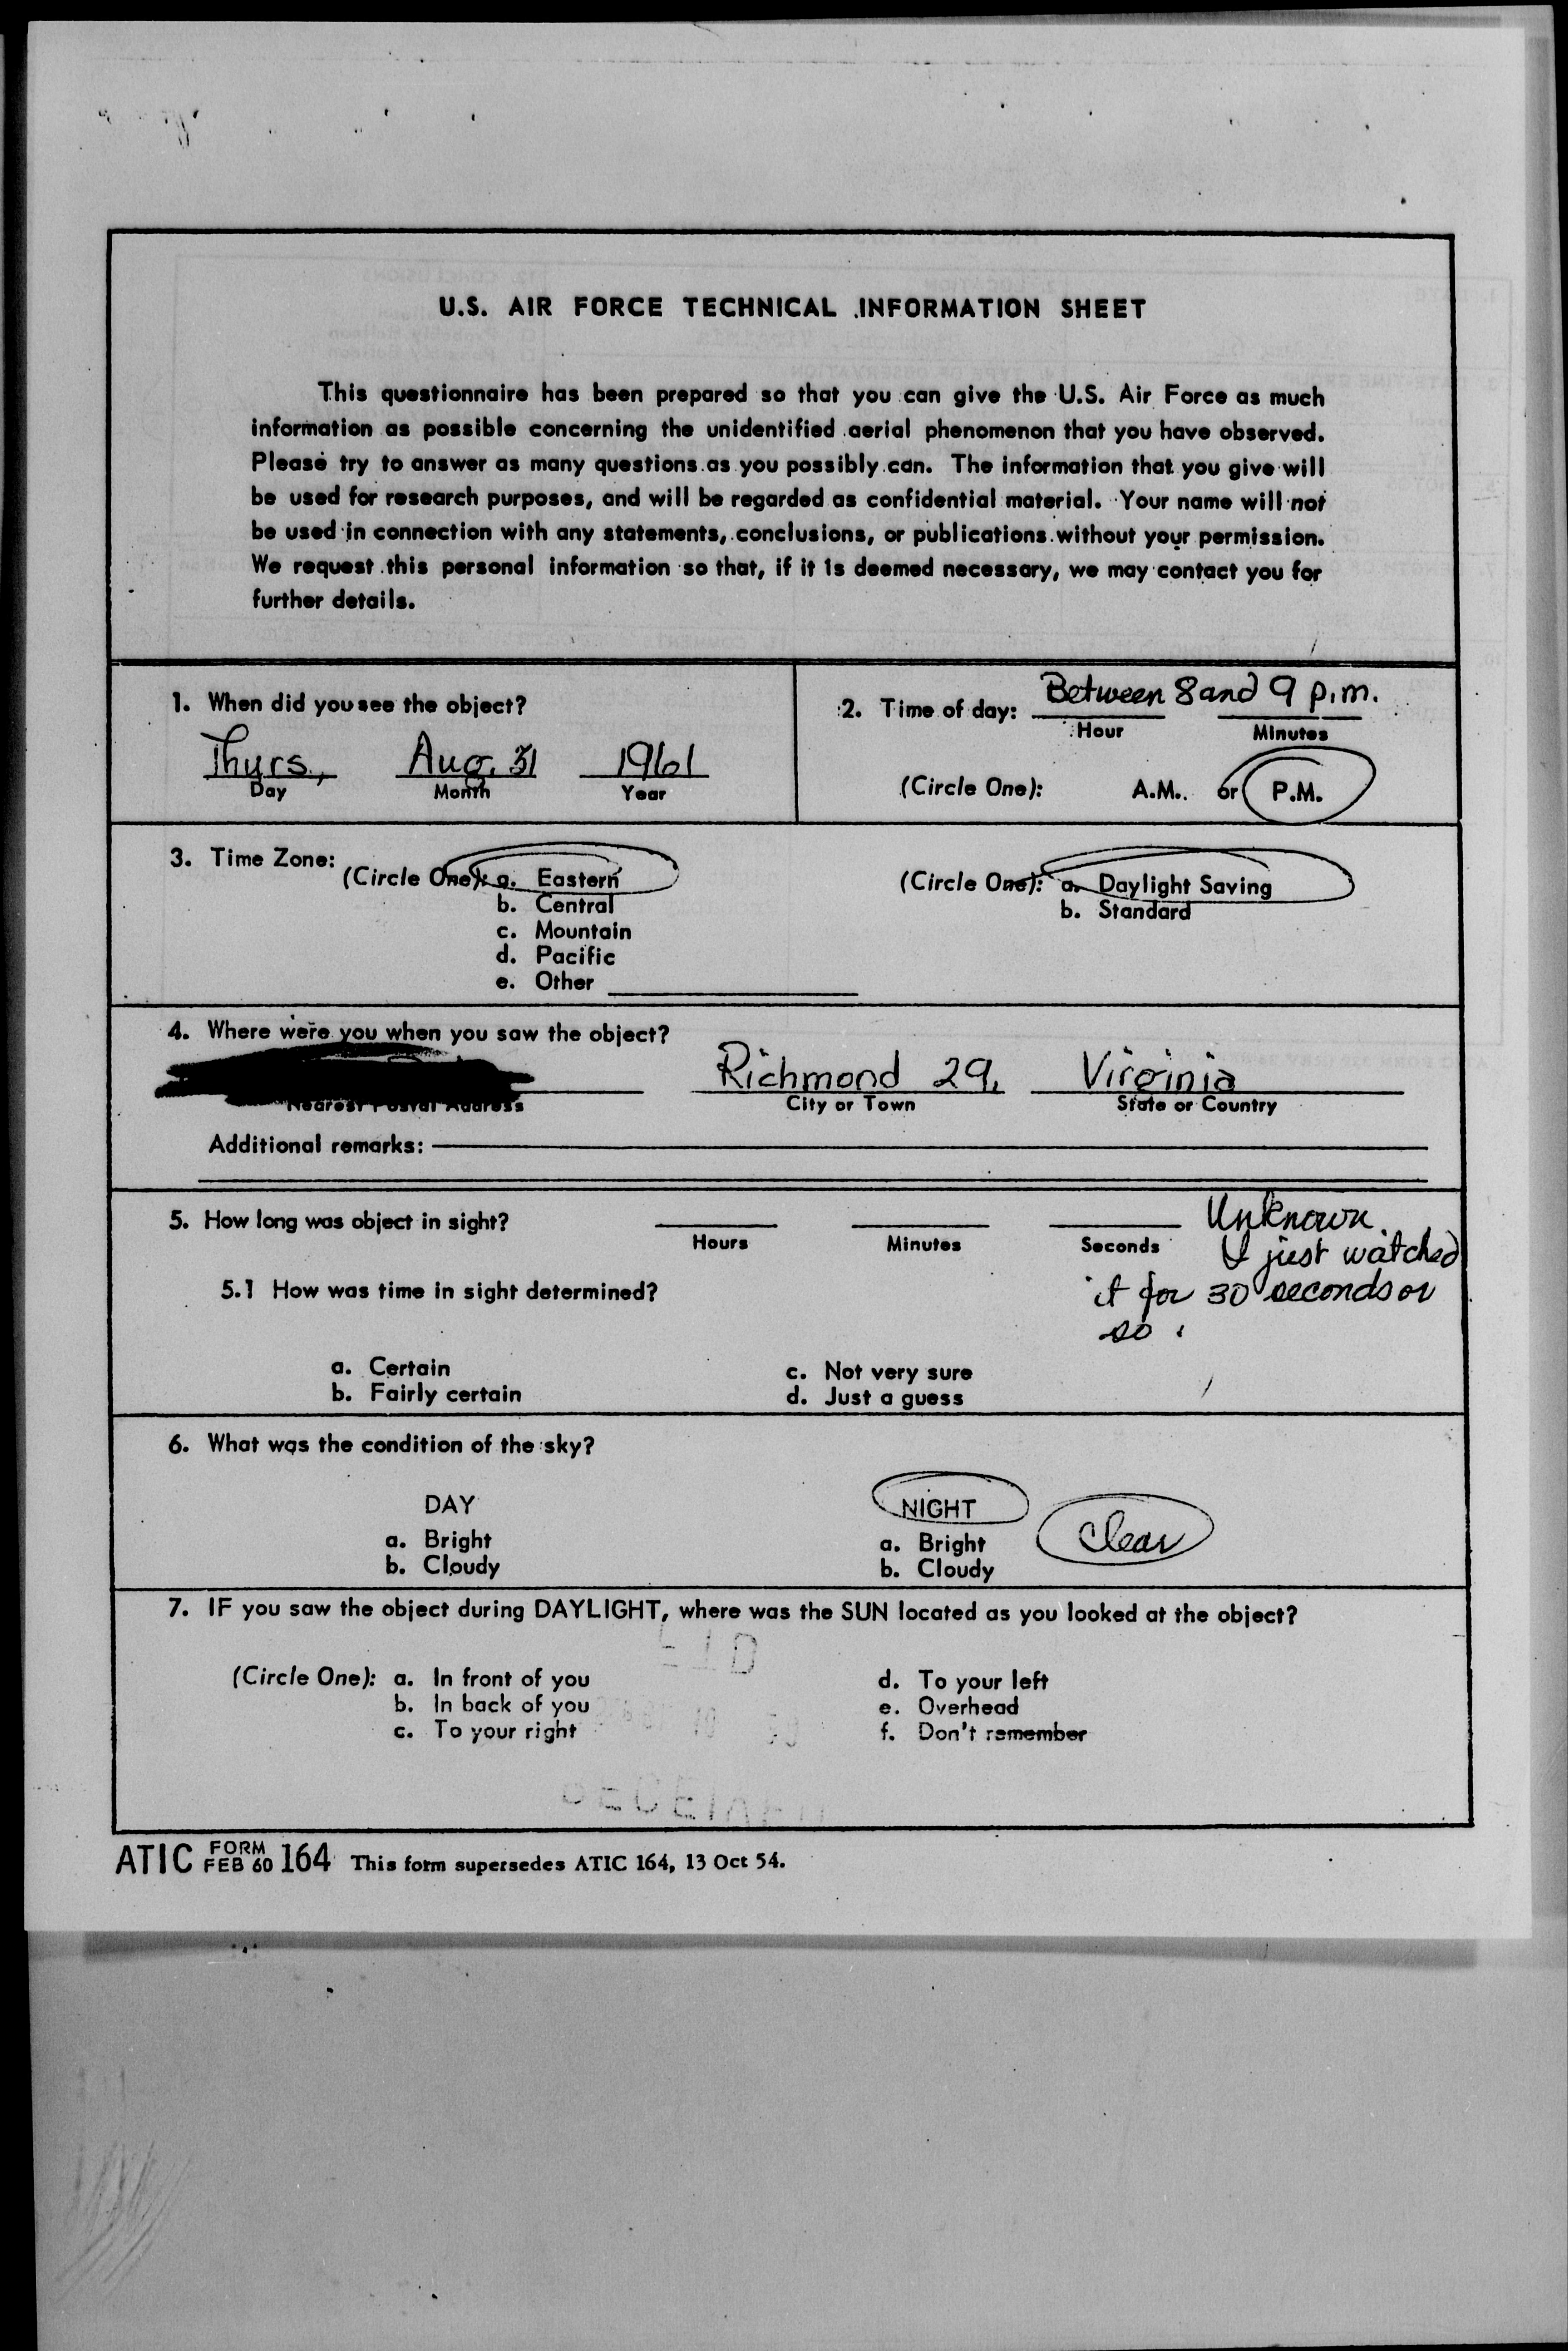 U.S. AIR FORCE TECHNICAL INFORMATION SHEET
This questionnaire has been prepared so that you can give the U.S. Air Force as much
information as possible concerning the unidentified aerial phenomenon that you have observed.
Please try to answer as many questions as you possibly can. The information that you give will
be used for research purposes, and will be regarded as confidential material. Your name will not
be used in connection with any statements, conclusions, or publications without your permission.
We request this personal information so that, if it is deemed necessary, we may contact you for
further details.
1. When did you see the object?
Thurs, Aug. 31 1961
Day Month Year
2. Time of day: Between 8 and 9 p.m.
Hour Minutes
(Circle One): A.M. or P.M.
3. Time Zone:
(Circle One): a. Eastern
b. Central
c. Mountain
d. Pacific
e. Other
(Circle One): a. Daylight Saving
b. Standard
4. Where were you when you saw the object?
Richmond 29, Virginia
Nearest Postal Address City or Town State or Country
Additional remarks:
5. How long was object in sight? Unknown.
Hours Minutes Seconds I just watched
5.1 How was time in sight determined? it for 30 seconds or
so.
a. Certain c. Not very sure
b. Fairly certain d. Just a guess
6. What was the condition of the sky?
DAY NIGHT
a. Bright a. Bright Clear
b. Cloudy b. Cloudy
7. IF you saw the object during DAYLIGHT, where was the SUN located as you looked at the object?
(Circle One): a. In front of you d. To your left
b. In back of you e. Overhead
c. To your right f. Don't remember
ATIC FORM FEB 60 164 This form supersedes ATIC 164, 13 Oct 54.